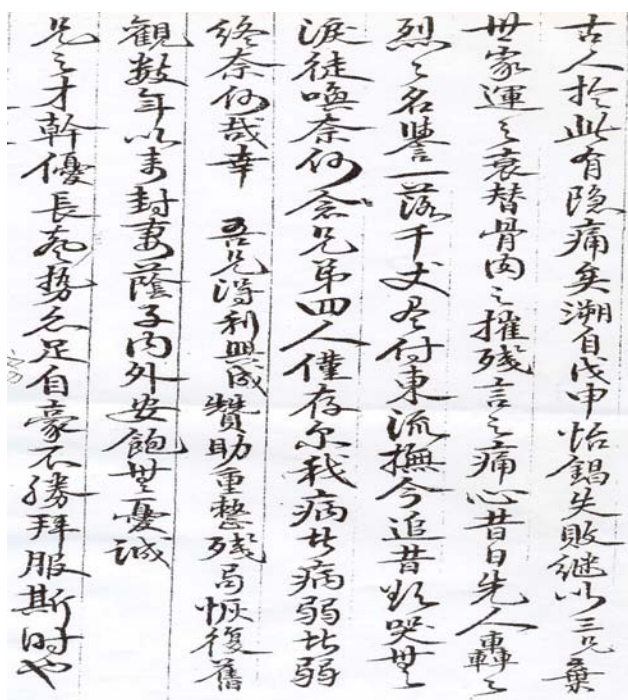 古人於此有隐痛矣溯自戊申怡錩失敗継以三兄棄
世家運之衰替骨肉之摧残言之痛心昔日先人轟轟之
烈之名譽一落千丈尽付東流撫今追昔欲哭無
淚徒喚奈何念兄弟四人僅存尔我病者病弱者弱
終奈何哉幸　吾兄得利興成贊助重整残局恢復舊
觀数年以来封妻蔭子内外安飽無憂誠
兄之才幹優長處勢亦足自豪不勝拜服斯时也